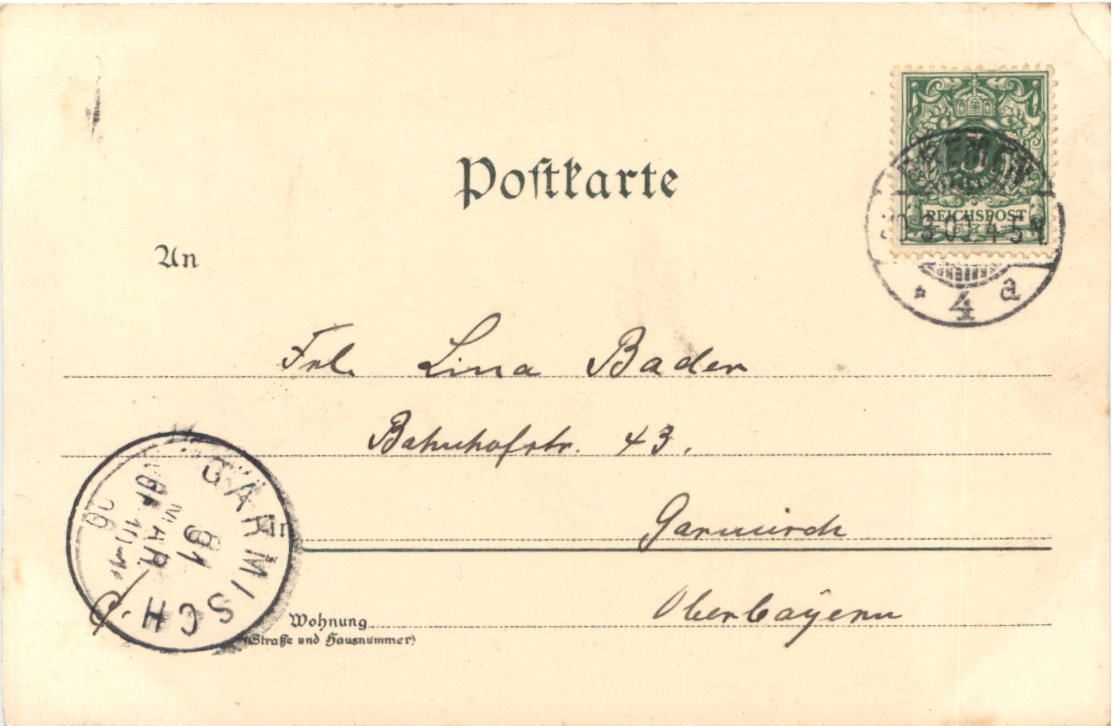 Postkarte
5
REICHSPOST
4 a
An
Frl. Lina Bader
Bahnhofstr. 43.
GARMISCH
31
MAR
in
Garmisch
Wohnung
Oberbayern
(Straße und Hausnummer)